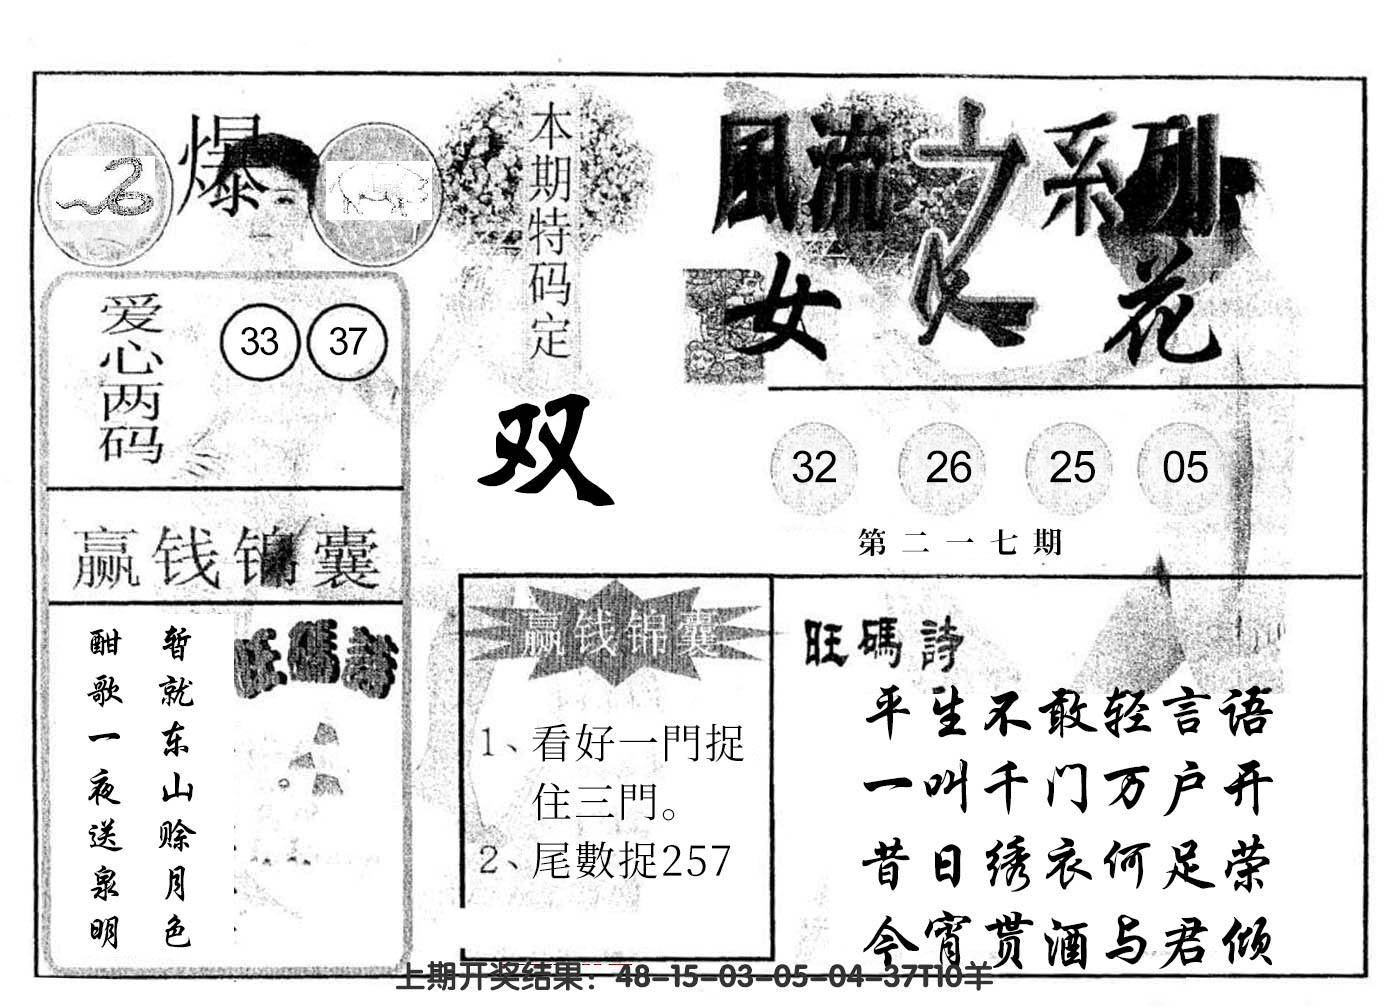 爆
本期特码定
双
風流之系列
女人花
爱心两码
33 37
32 26 25 05
第二一七期
赢钱锦囊
旺碼詩
暂就东山赊月色
酣歌一夜送泉明
赢钱锦囊
1、看好一門捉
住三門。
2、尾數捉257
旺碼詩
平生不敢轻言语
一叫千门万户开
昔日绣衣何足荣
今宵贳酒与君倾
上期开奖结果：48-15-03-05-04-37T10羊